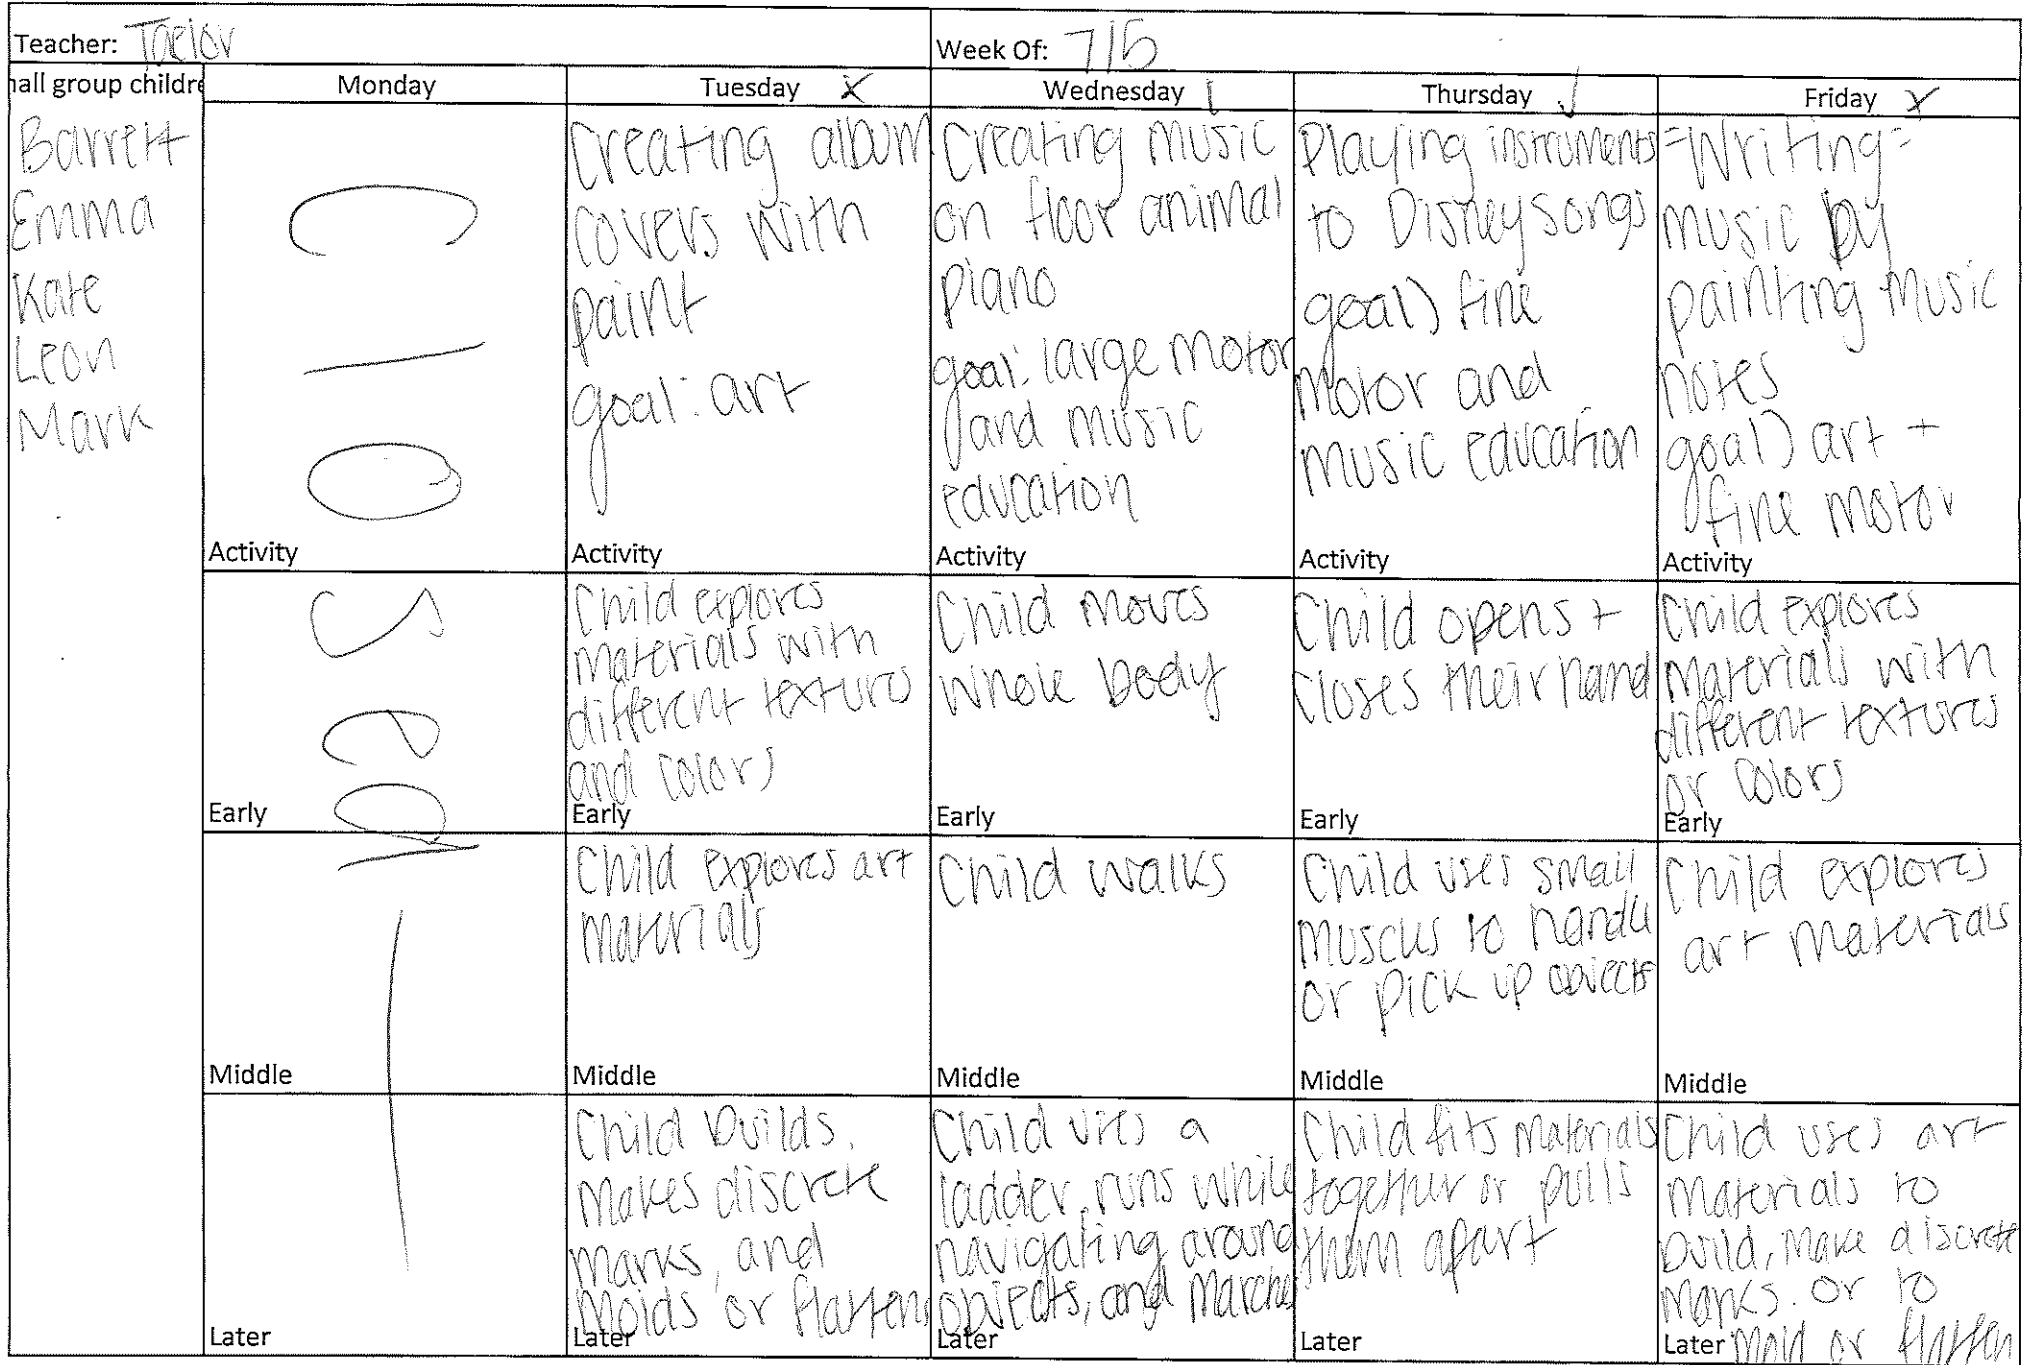 Teacher: Taelor
Week Of: 7/5
nall group childre
Monday
Tuesday x
Wednesday
Thursday ✓
Friday x
Barrett
Emma
Kate
Leon
Mark
Closed
Activity
Early
Middle
Later
Creating album
covers with
paint
goal: art
Activity
Creating music
on floor animal
piano
goal: large motor
and music
education
Activity
Playing instruments
to Disney songs
goal) fine
motor and
music education
Activity
=Writing=
music by
painting music
notes
goal) art +
fine motor
Activity
Child explores
materials with
different textures
and colors
Early
Child moves
whole body
Early
Child opens +
closes their hand
Early
Child explores
materials with
different textures
or colors
Early
Child explores art
materials
Middle
Child walks
Middle
Child uses small
muscles to handle
or pick up objects
Middle
Child explores
art materials
Middle
Child builds,
makes discrete
marks, and
molds or flattens
Later
Child uses a
ladder, runs while
navigating around
objects, and marches
Later
Child fits materials
together or pulls
them apart
Later
Child uses art
materials to
build, make discrete
marks. or to
mold or flatten
Later